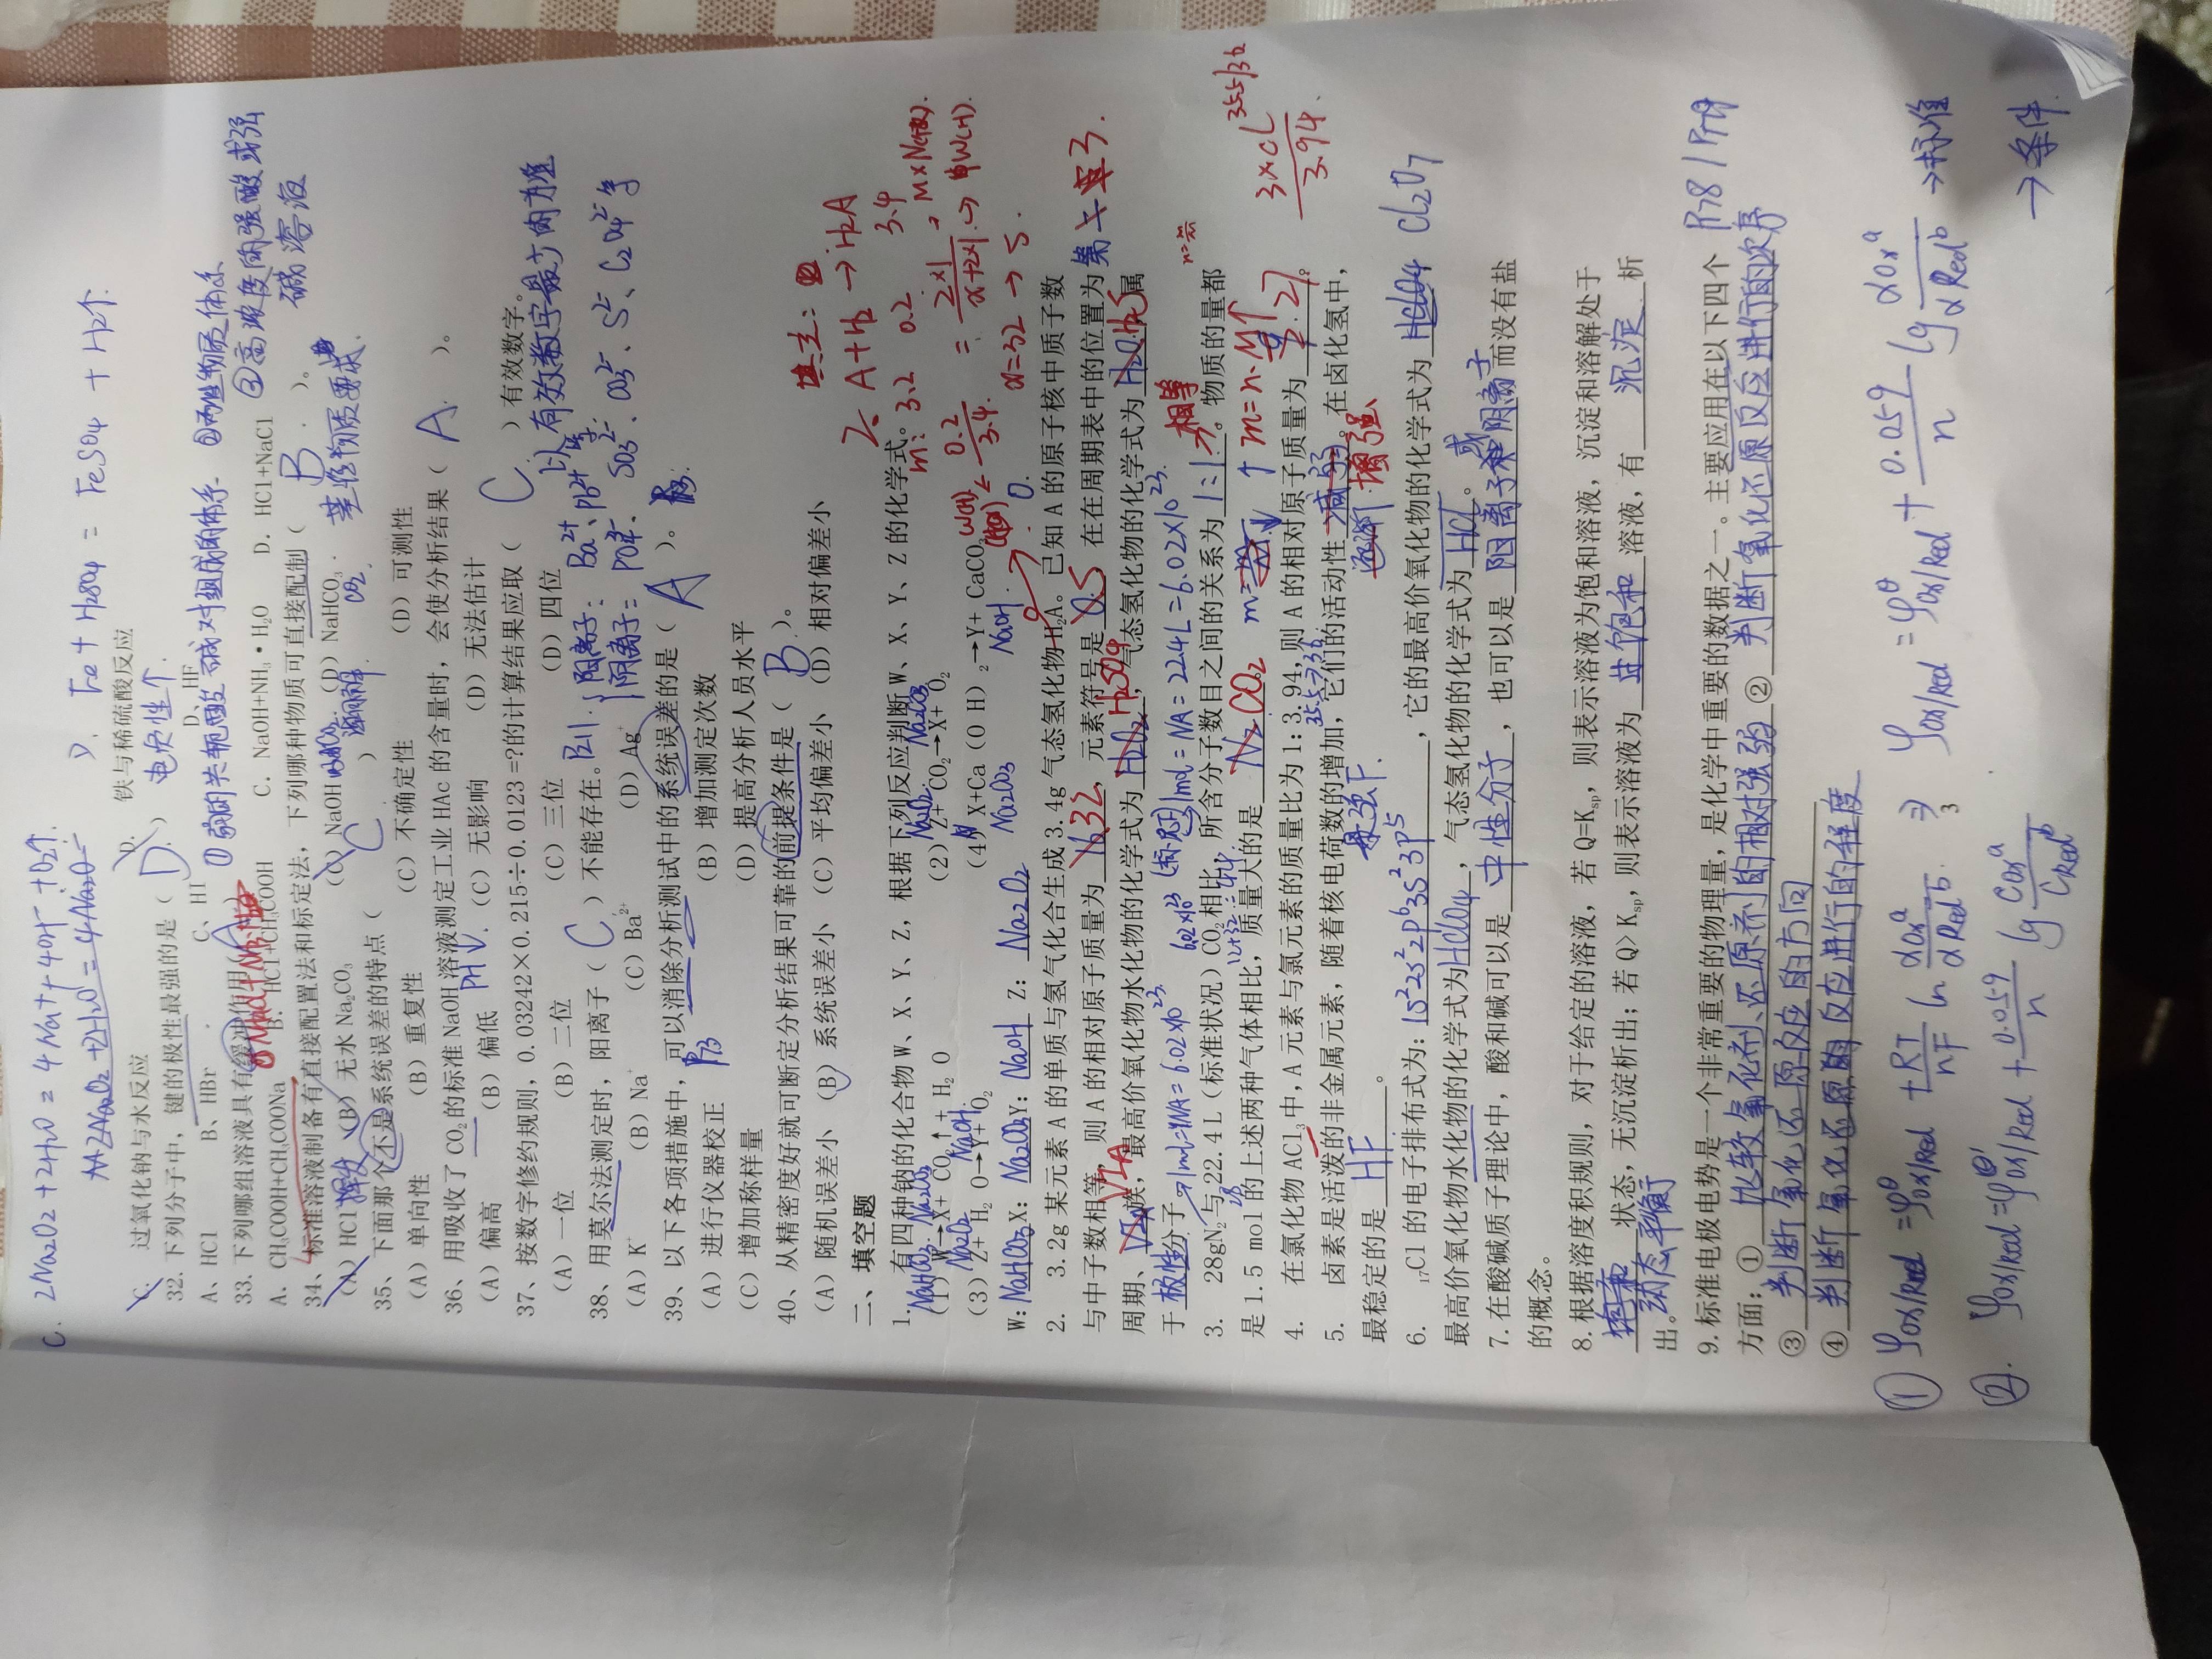 C. 2Na2O2 + 2H2O = 4Na+ + 4OH- + O2↑.
D. Fe + H2SO4 = FeSO4 + H2↑.
C. 过氧化钠与水反应 D. 铁与稀硫酸反应
32. 下列分子中，键的极性最强的是（ D. ） 电负性↑.
A、HCl B、HBr C、HI D、HF
①弱的共轭酸碱对组成的体系. ②两性物质体系
③高浓度的强酸或强碱溶液
33. 下列哪组溶液具有缓冲作用（A）
A. CH₃COOH+CH₃COONa B. HCl+CH₃COOH C. NaOH+NH₃•H₂O D. HCl+NaCl
34、标准溶液制备有直接配置法和标定法，下列哪种物质可直接配制（ B ）。
(A) HCl 挥发 (B) 无水 Na₂CO₃ (C) NaOH 潮解 (D) NaHCO₃. 基准物质要求.
35、下面那个不是系统误差的特点（ C ）
(A) 单向性 (B) 重复性 (C) 不确定性 (D) 可测性
36、用吸收了 CO₂的标准 NaOH 溶液测定工业 HAc 的含量时，会使分析结果（ A. ）。
(A) 偏高 (B) 偏低 (C) 无影响 (D) 无法估计
37、按数字修约规则，0.03242×0.215÷0.0123=?的计算结果应取（ C. ）有效数字。
(A) 一位 (B) 二位 (C) 三位 (D) 四位 以有效数字最少的为准
38、用莫尔法测定时，阳离子（ C ）不能存在。P21.
阳离子：Ba2+、Pb2+等
阴离子=PO43-、SO32-、CO32-、S2-、C2O42-等
(A) K⁺ (B) Na⁺ (C) Ba²⁺ (D) Ag⁺
39、以下各项措施中，可以消除分析测试中的系统误差的是（ A ）。
(A) 进行仪器校正 (B) 增加测定次数
(C) 增加称样量 (D) 提高分析人员水平
40、从精密度好就可断定分析结果可靠的前提条件是（ B. ）。
(A) 随机误差小 (B) 系统误差小 (C) 平均偏差小 (D) 相对偏差小
二、填空题
1. 有四种钠的化合物 W、X、Y、Z，根据下列反应判断 W、X、Y、Z 的化学式。
(1) W→X+ CO₂↑+ H₂O (2) Z+ CO₂→X+ O₂
(3) Z+ H₂O→Y+ O₂ (4) X+Ca（OH）₂→Y+ CaCO₃
W: NaHCO3 X: Na2CO3 Y: NaOH Z: Na2O2
2. A+H2→H2A
m: 3.2 0.2 3.4
x=32→S.
2. 3.2g 某元素 A 的单质与氢气化合生成 3.4g 气态氢化物 H₂A。已知 A 的原子核中质子数
与中子数相等，则 A 的相对原子质量为 32，元素符号是 S，在在周期表中的位置为第 3
周期、VIA 族，最高价氧化物水化物的化学式为 H2SO4，气态氢化物的化学式为 H2S 属
于极性分子
3. 28gN₂与22.4L（标准状况）CO₂相比，所含分子数目之间的关系为 1:1 相等。物质的量都
是 1.5 mol 的上述两种气体相比，质量大的是 CO2 m=n·M↑
4. 在氯化物 ACl₃ 中，A 元素与氯元素的质量比为 1: 3.94, 则 A 的相对原子质量为 27。
5. 卤素是活泼的非金属元素，随着核电荷数的增加，它们的活动性 减弱。在卤化氢中，
最稳定的是 HF。
6. ₁₇Cl 的电子排布式为：1s22s22p63s23p5，它的最高价氧化物的化学式为 Cl2O7
最高价氧化物水化物的化学式为 HClO4，气态氢化物的化学式为 HCl。
7. 在酸碱质子理论中，酸和碱可以是 中性分子，也可以是 阳离子或阴离子 而没有盐
的概念。
8. 根据溶度积规则，对于给定的溶液，若 Q=Kₛₚ，则表示溶液为饱和溶液，沉淀和溶解处于
动态平衡 状态，无沉淀析出；若 Q〉Kₛₚ，则表示溶液为 过饱和 溶液，有 沉淀 析
出。
9. 标准电极电势是一个非常重要的物理量，是化学中重要的数据之一。主要应用在以下四个 P178/P179
方面：① 比较氧化剂、还原剂的相对强弱 ② 判断氧化还原反应进行的次序
③ 判断氧化还原反应的方向
④ 判断氧化还原的反应进行的程度
3
① φox/Red = φθox/Red + RT/nF ln αOxa/αRedb. ⇒ φox/Red = φθox/Red + 0.059/n lg αOxa/αRedb →标准
② φox/Red = φθ'ox/Red + 0.059/n lg COxa/CRedb. →条件.